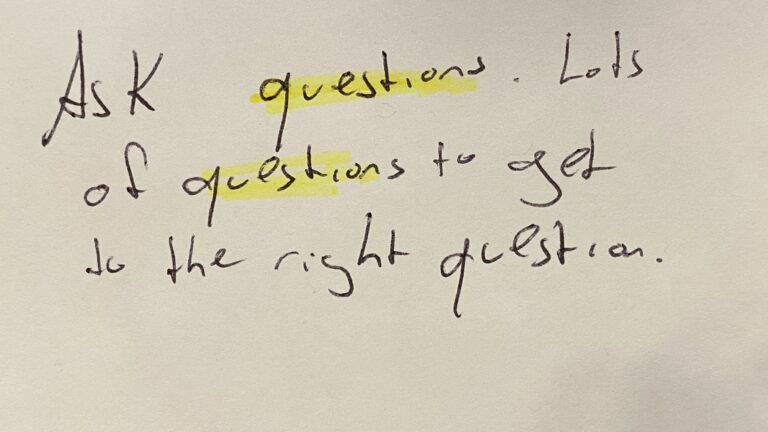 Ask questions. Lots
of questions to get
to the right question.